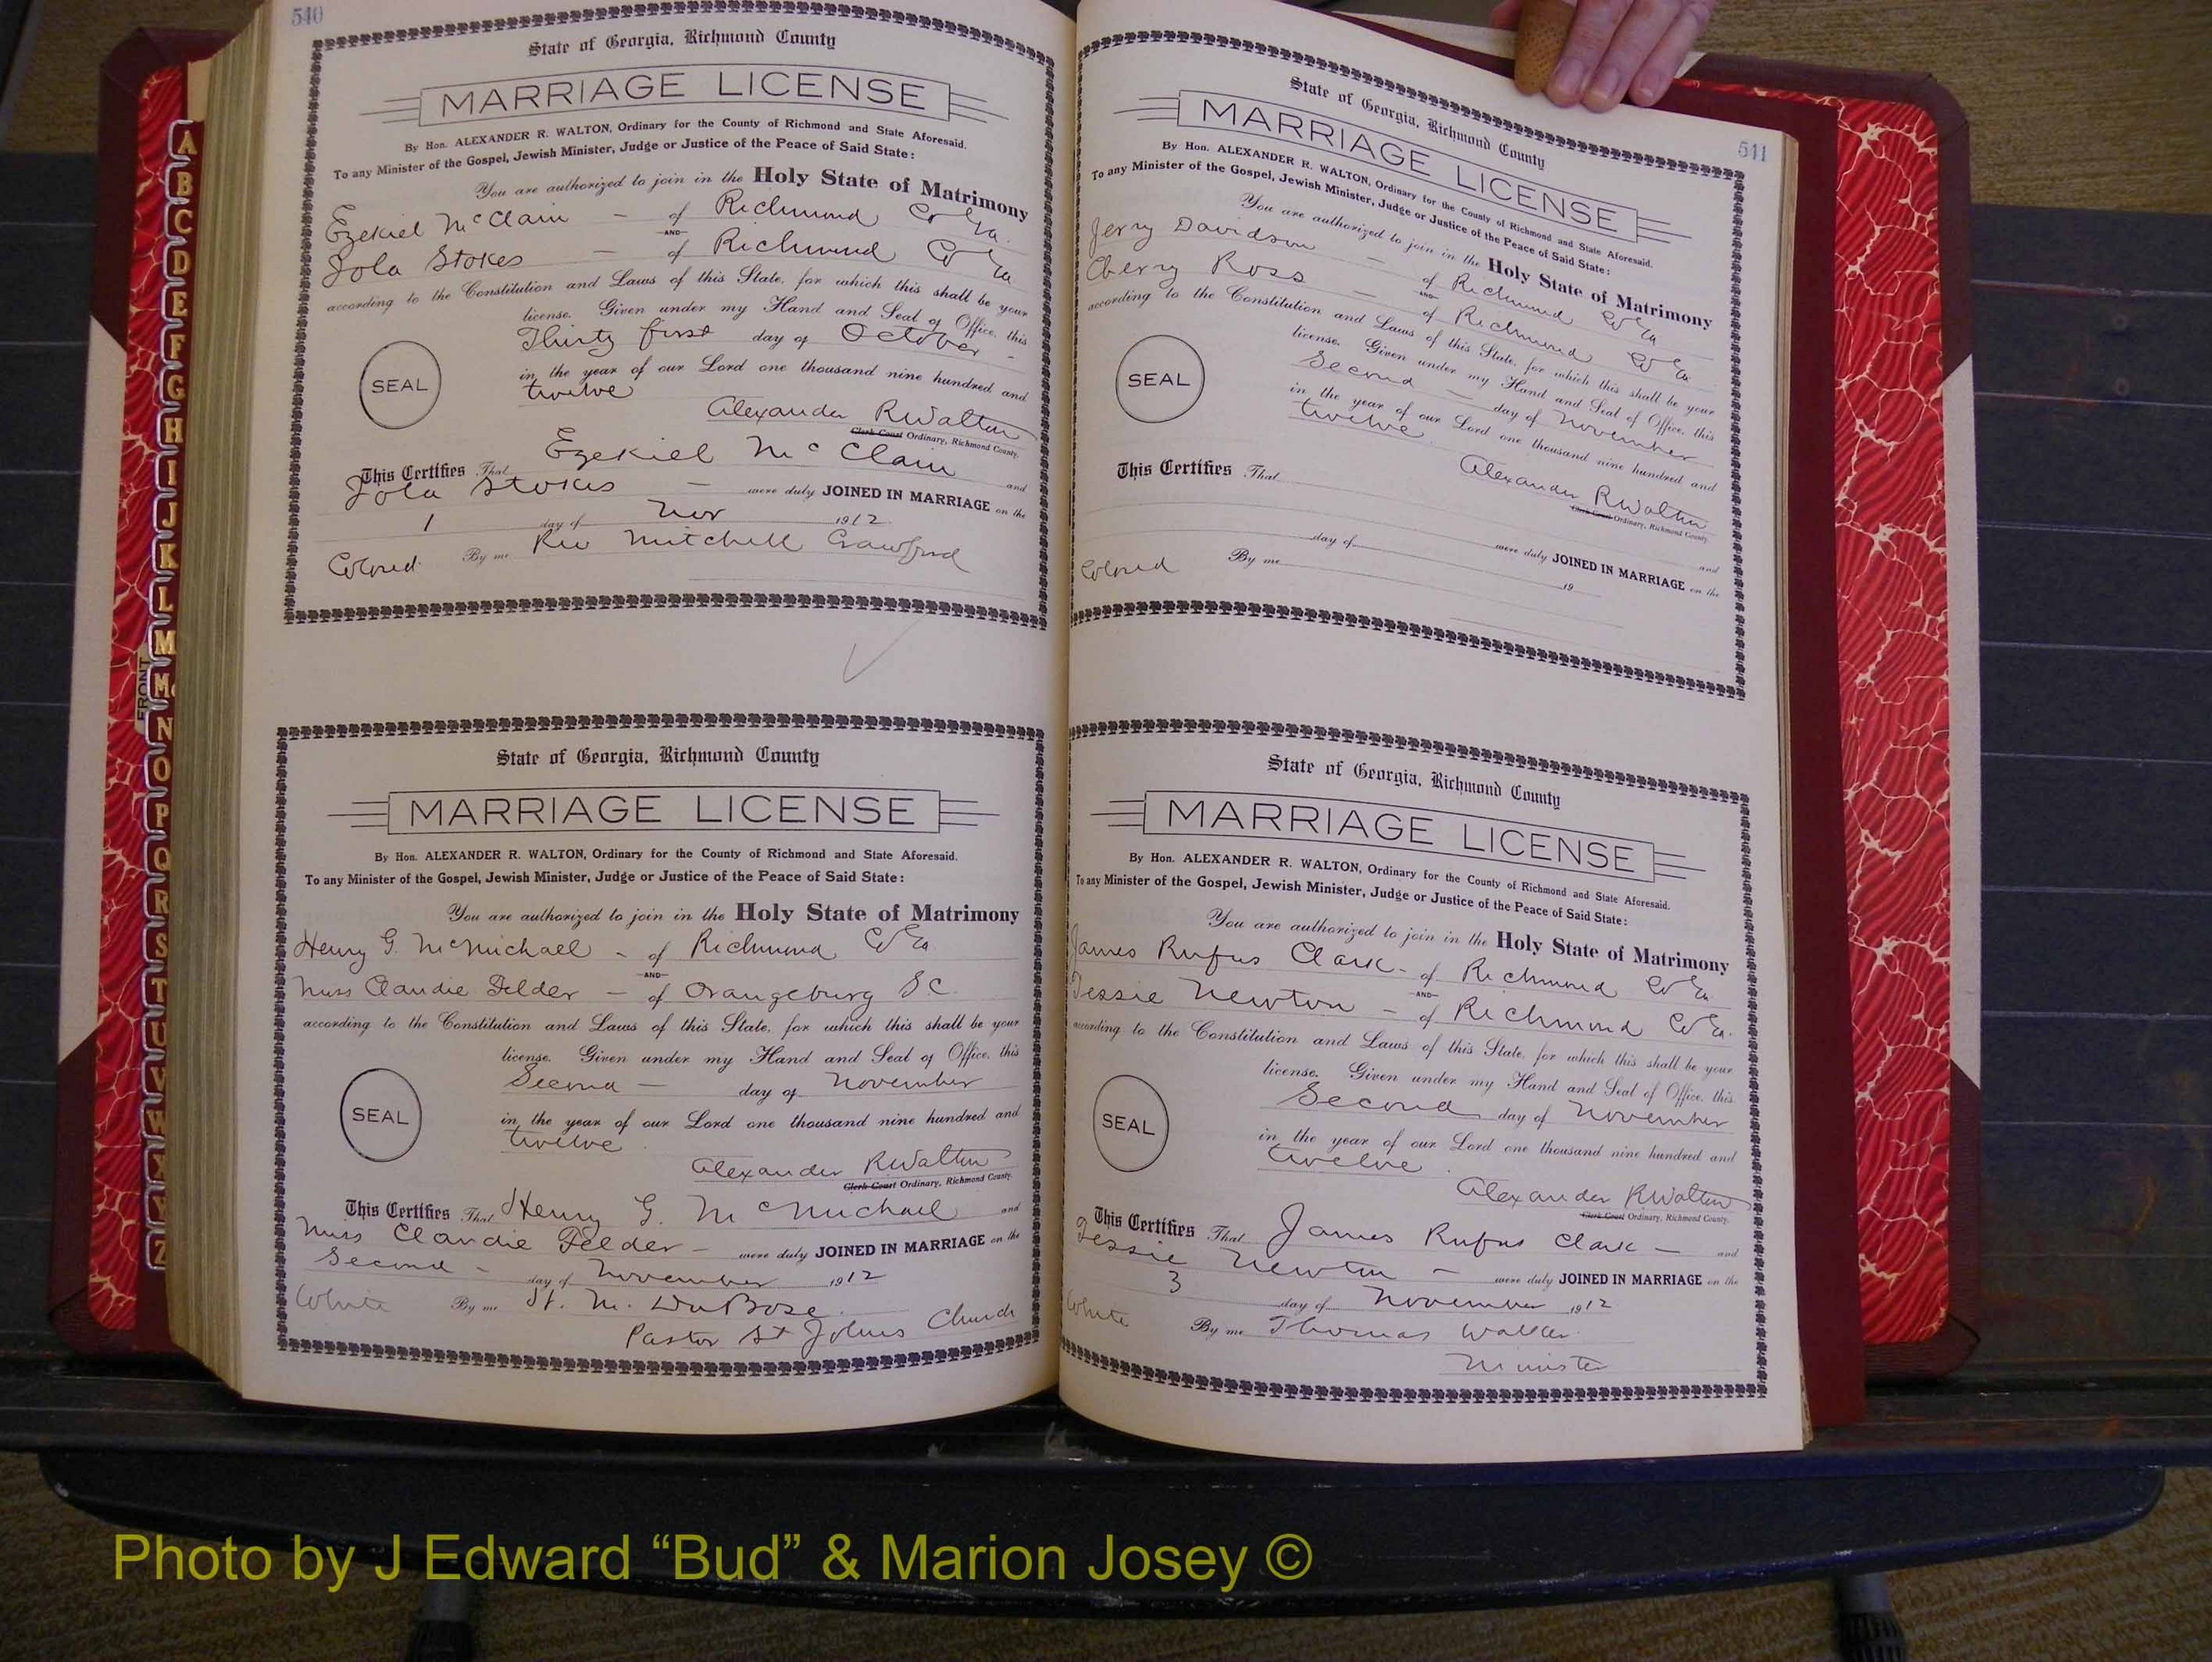 540
State of Georgia, Richmond County
MARRIAGE LICENSE
By Hon. ALEXANDER R. WALTON, Ordinary for the County of Richmond and State Aforesaid.
To any Minister of the Gospel, Jewish Minister, Judge or Justice of the Peace of Said State:
You are authorized to join in the Holy State of Matrimony
Ezekiel McClain - of Richmond Co Ga.
AND
Iola Stokes - of Richmond Co Ga
according to the Constitution and Laws of this State, for which this shall be your
license. Given under my Hand and Seal of Office, this
Thirty first day of October -
SEAL
in the year of our Lord one thousand nine hundred and
twelve
Alexander R Walton
Clerk Court Ordinary, Richmond County.
This Certifies That Ezekiel McClain and
Iola Stokes - were duly JOINED IN MARRIAGE on the
1 day of Nov 1912
Colored By me Rev Mitchell Crawford
State of Georgia, Richmond County
MARRIAGE LICENSE
By Hon. ALEXANDER R. WALTON, Ordinary for the County of Richmond and State Aforesaid.
To any Minister of the Gospel, Jewish Minister, Judge or Justice of the Peace of Said State:
You are authorized to join in the Holy State of Matrimony
Henry G. McMichael - of Richmond Co Ga.
AND
Miss Claudie Felder - of Orangeburg S C
according to the Constitution and Laws of this State, for which this shall be your
license. Given under my Hand and Seal of Office, this
Second - day of November
SEAL
in the year of our Lord one thousand nine hundred and
twelve
Alexander R Walton
Clerk Court Ordinary, Richmond County.
This Certifies That Henry G. McMichael and
Miss Claudie Felder - were duly JOINED IN MARRIAGE on the
Second - day of November 1912
White By me M. DuBose.
Pastor St Johns Church
541
State of Georgia, Richmond County
MARRIAGE LICENSE
By Hon. ALEXANDER R. WALTON, Ordinary for the County of Richmond and State Aforesaid.
To any Minister of the Gospel, Jewish Minister, Judge or Justice of the Peace of Said State:
You are authorized to join in the Holy State of Matrimony
Jerry Davidson - of Richmond Co Ga
AND
Cherry Ross - of Richmond Co Ga
according to the Constitution and Laws of this State, for which this shall be your
license. Given under my Hand and Seal of Office, this
Second - day of November
SEAL
in the year of our Lord one thousand nine hundred and
twelve
Alexander R Walton
Clerk Court Ordinary, Richmond County.
This Certifies That and
were duly JOINED IN MARRIAGE on the
day of 19
Colored By me
State of Georgia, Richmond County
MARRIAGE LICENSE
By Hon. ALEXANDER R. WALTON, Ordinary for the County of Richmond and State Aforesaid.
To any Minister of the Gospel, Jewish Minister, Judge or Justice of the Peace of Said State:
You are authorized to join in the Holy State of Matrimony
James Rufus Clark - of Richmond Co Ga
AND
Jessie Newton - of Richmond Co Ga.
according to the Constitution and Laws of this State, for which this shall be your
license. Given under my Hand and Seal of Office, this
Second day of November
SEAL
in the year of our Lord one thousand nine hundred and
twelve.
Alexander R Walton
Clerk Court Ordinary, Richmond County.
This Certifies That James Rufus Clark - and
Jessie Newton - were duly JOINED IN MARRIAGE on the
3 day of November 1912
White By me Thomas Walker
Minister
A
B
C
D
E
F
G
H
I
J
K
L
M
Mc
N
O
P
Q
R
S
T
U
V
W
X
Y
Z
FRONT
Photo by J Edward “Bud” & Marion Josey ©